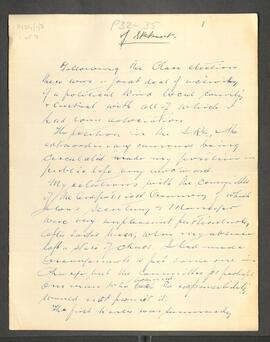 P32-35
1
Statement.
Following the Clare election
there was a great deal of activity
of a political kind local, county
& central with all of which I
had some association.
The position in the I.R.A, & the
extraordinary rumours being
circulated made my position in
public life very awkward.
My relations with the Committee
of the Carrigaholt Creamery which
I was Secretary & Manager
were very unpleasant particularly
after Easter Week, when my absence
left a state of chaos. I had made
arrangements to put some one in
charge, but the Committee or probably
one man who
the responsibility
would not permit it.
The first trouble was